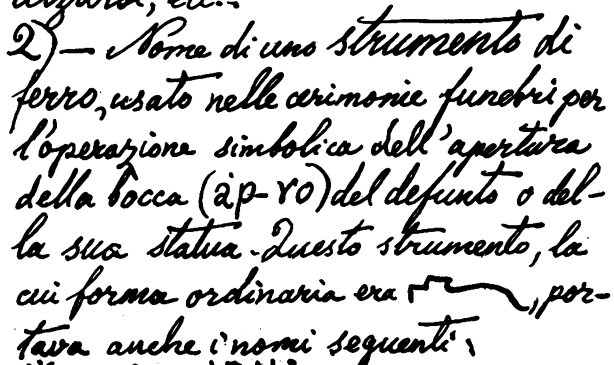 2) — Nome di uno strumento di
ferro, usato nelle cerimonie funebri per
l'operazione simbolica dell'apertura
della bocca (àp-ro) del defunto o del-
la sua statua. Questo strumento, la
cui forma ordinaria era , por-
tava anche i nomi seguenti: